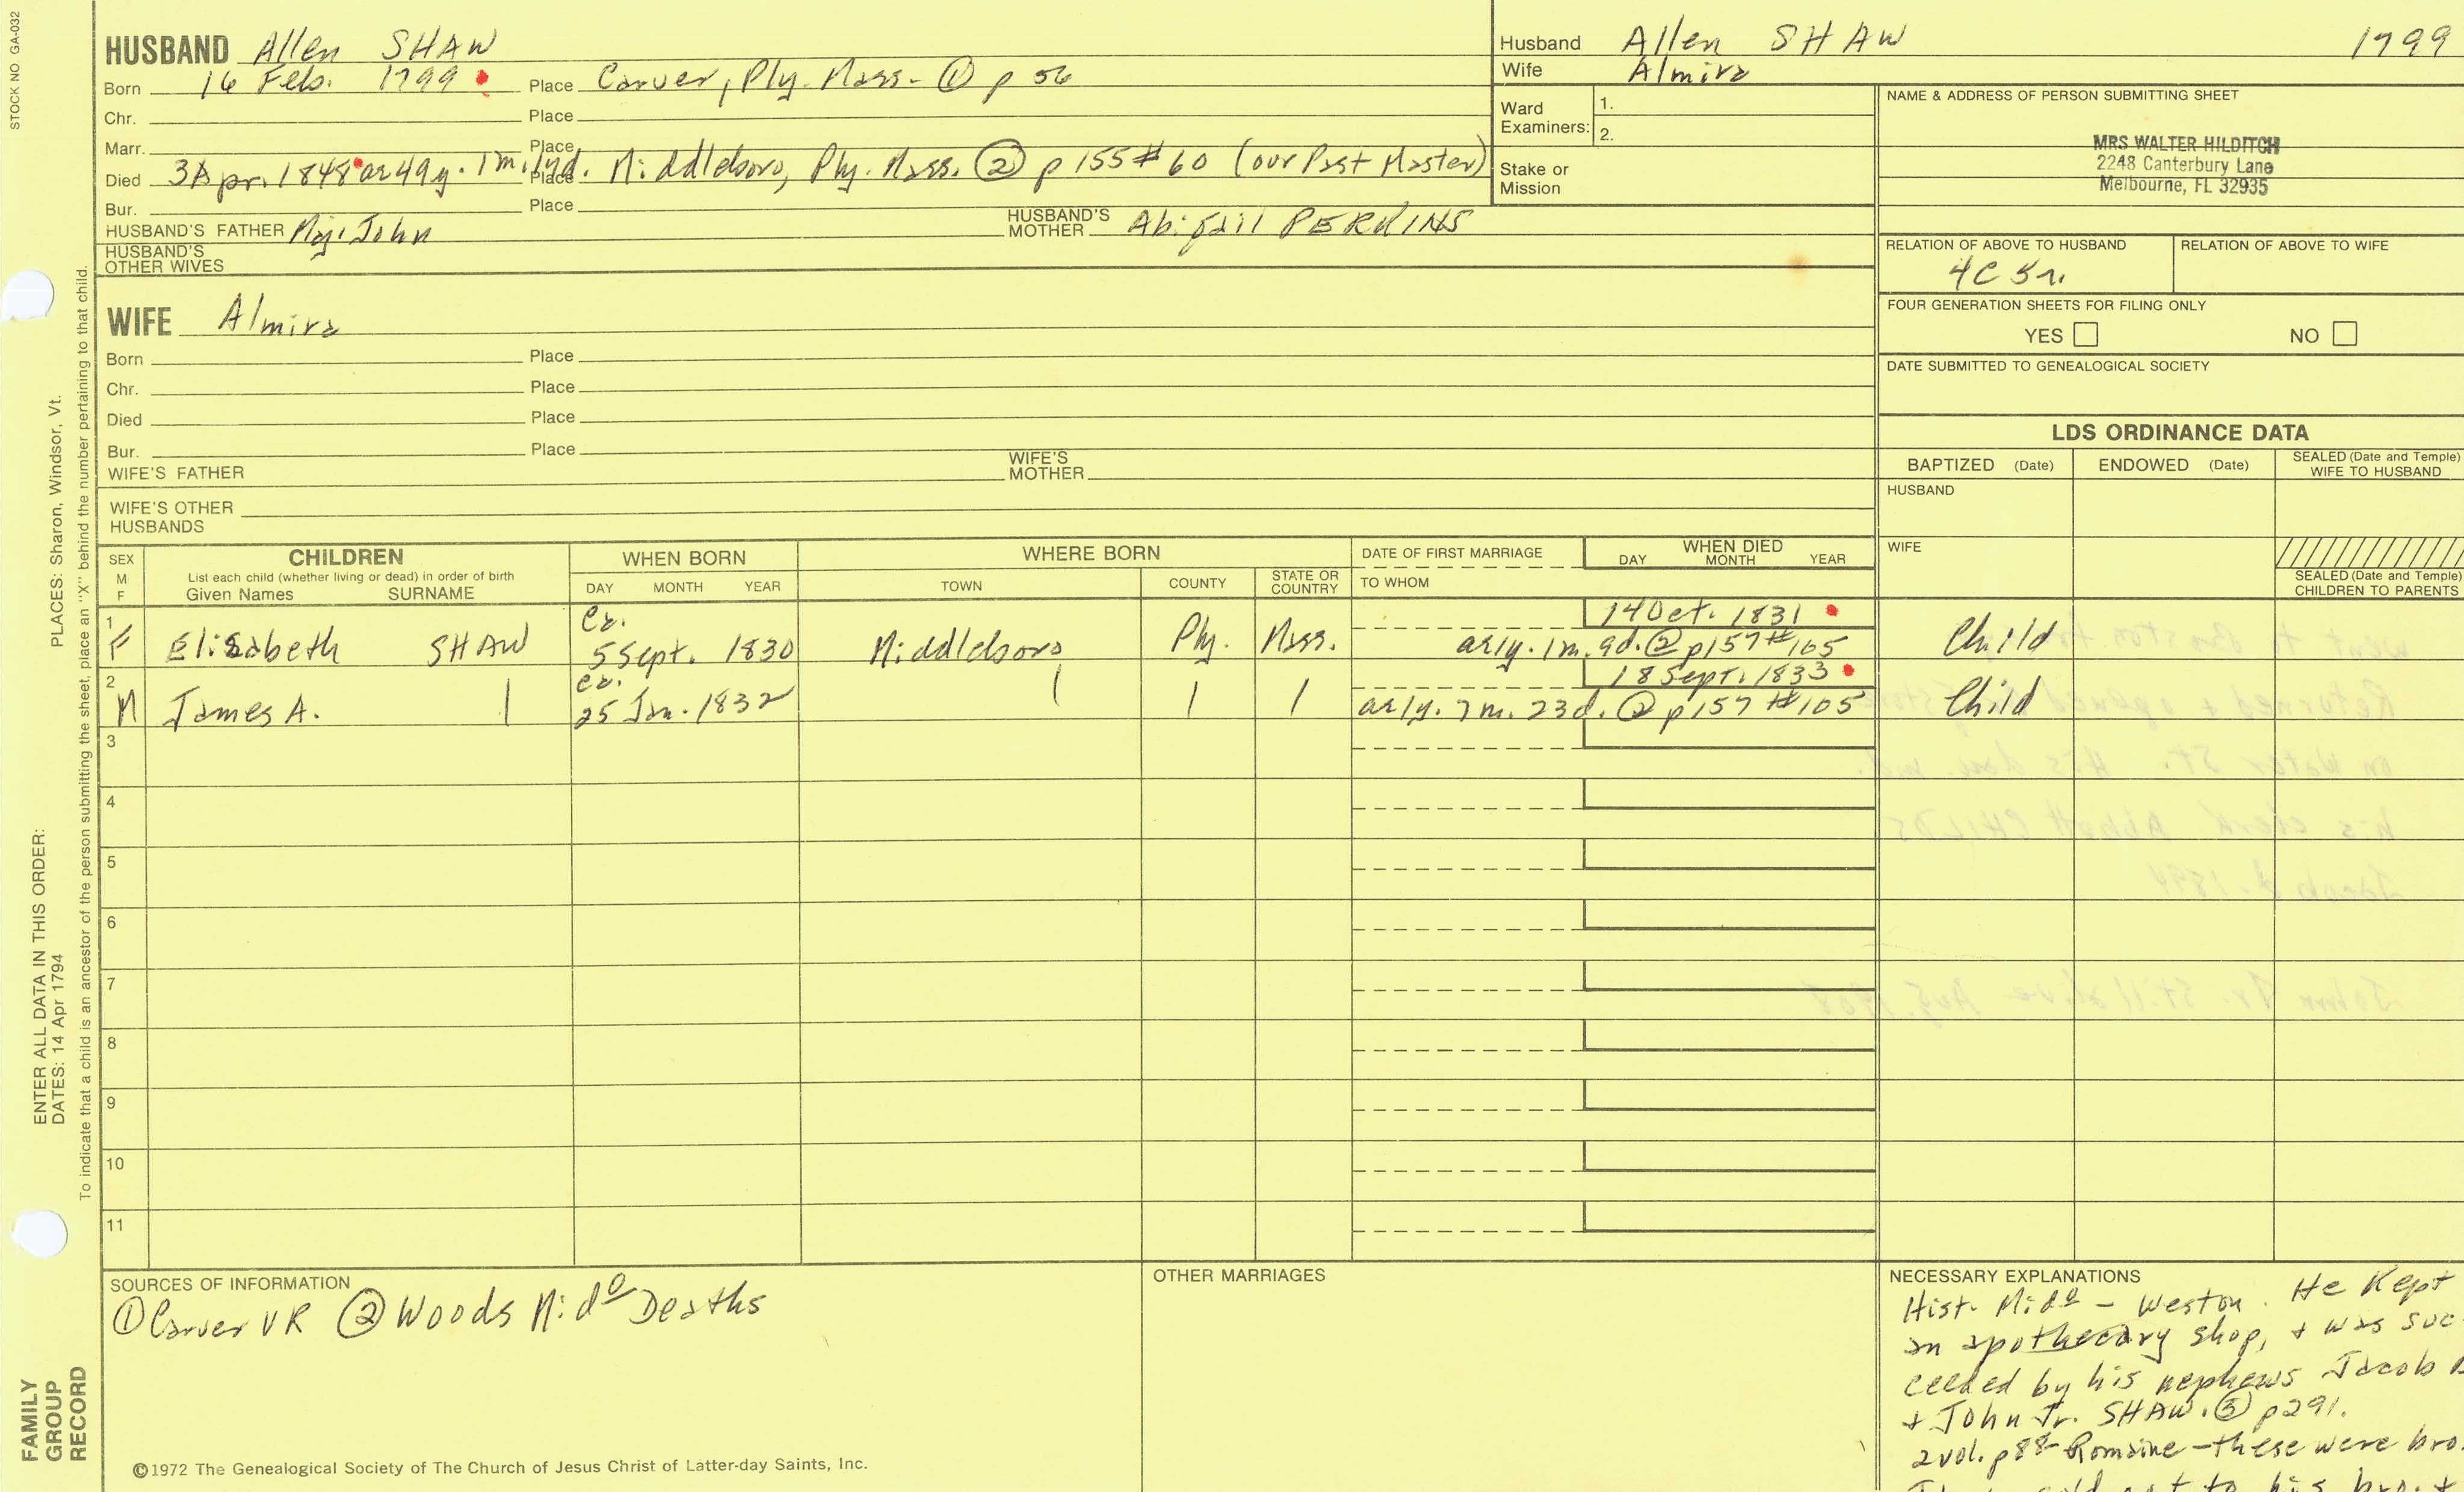 STOCK NO GA-032
HUSBAND Allen SHAW
Born 16 Feb. 1799 Place Carver, Ply. Mass. ① p 56
Chr. Place
Marr. Place
Died 3 Apr. 1848 ae 49 y. 1 m. 1yd. Place Middleboro, Ply. Mass. ② p 155 # 60 (our Post Master)
Bur. Place
HUSBAND'S FATHER Maj. John HUSBAND'S MOTHER Abigail PERKINS
HUSBAND'S OTHER WIVES
WIFE Almira
Born Place
Chr. Place
Died Place
Bur. Place
WIFE'S FATHER WIFE'S MOTHER
WIFE'S OTHER HUSBANDS
Husband Allen SHAW 1799
Wife Almira
Ward Examiners: 1.
2.
Stake or Mission
NAME & ADDRESS OF PERSON SUBMITTING SHEET
MRS WALTER HILDITCH
2248 Canterbury Lane
Melbourne, FL 32935
RELATION OF ABOVE TO HUSBAND RELATION OF ABOVE TO WIFE
4C 5r.
FOUR GENERATION SHEETS FOR FILING ONLY
YES NO
DATE SUBMITTED TO GENEALOGICAL SOCIETY
LDS ORDINANCE DATA
BAPTIZED (Date) ENDOWED (Date) SEALED (Date and Temple) WIFE TO HUSBAND
HUSBAND
WIFE
SEALED (Date and Temple) CHILDREN TO PARENTS
SEX M F CHILDREN WHEN BORN WHERE BORN DATE OF FIRST MARRIAGE WHEN DIED
List each child (whether living or dead) in order of birth
Given Names SURNAME DAY MONTH YEAR TOWN COUNTY STATE OR COUNTRY TO WHOM DAY MONTH YEAR
1 F Elizabeth SHAW ca. 5 Sept. 1830 Middleboro Ply. Mass. 14 Oct. 1831
ae 1y. 1m. 9d. ② p 157 # 105 Child
2 M James A. ca. 25 Jan. 1832 18 Sept. 1833
ae 1y. 7m. 23d. ② p 157 # 105 Child
3
4
5
6
7
8
9
10
11
SOURCES OF INFORMATION
① Carver VR ② Woods Mido Deaths
OTHER MARRIAGES
NECESSARY EXPLANATIONS
Hist. Mido - Weston. He Kept
an apothecary shop, + was suc-
ceeded by his nephews Jacob B
+ John Jr. SHAW. ③ p 291.
2 vol. p 88- Romaine - these were bro.
©1972 The Genealogical Society of The Church of Jesus Christ of Latter-day Saints, Inc.
PLACES: Sharon, Windsor, Vt.
To indicate that a child is an ancestor of the person submitting the sheet, place an "X" behind the number pertaining to that child.
ENTER ALL DATA IN THIS ORDER:
DATES: 14 Apr 1794
FAMILY
GROUP
RECORD